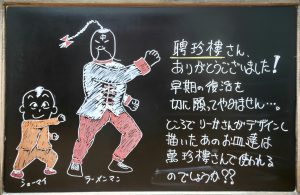 聘珍樓さん、
ありがとうございました!
早期の復活を
切に願ってやみません…。
ところで りーかさんがデザインし
描いたあのお皿達は
萬珍樓さんで使われる
のでしょうか??
シューマイ
ラーメンマン